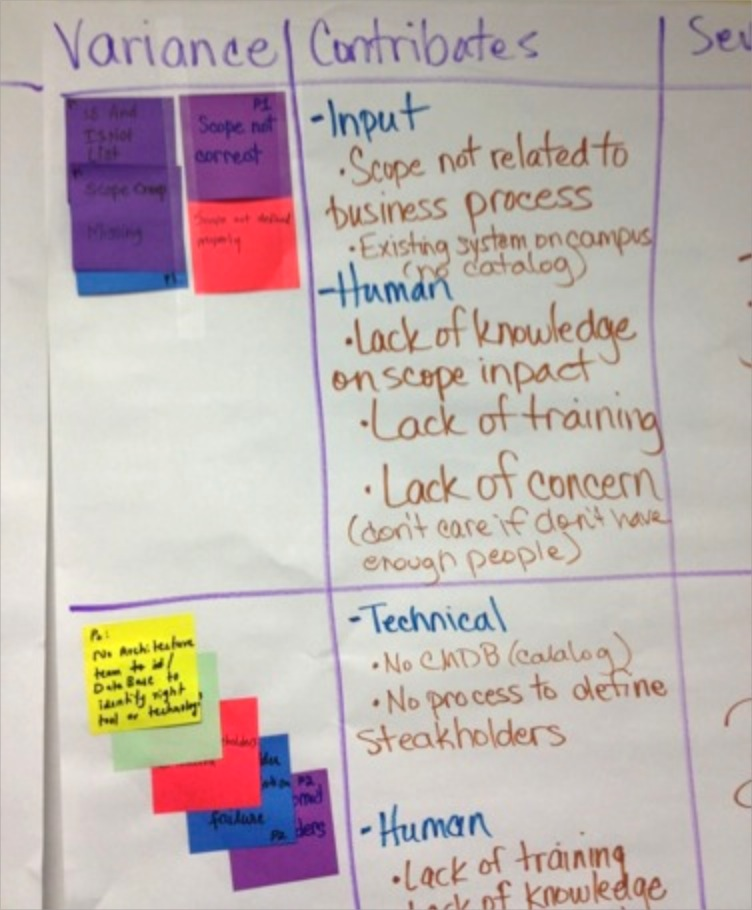 Variance
Contributes
Is And
IsNot
List
Scope Creep
Missing
P1
P1
Scope not
correct
Scope not defined
properly
-Input
·Scope not related to
business process
·Existing system on campus
(no catalog)
-Human
·Lack of knowledge
on scope inpact
·Lack of training
·Lack of concern
(don't care if don't have
enough people)
No Architecture
team to id/
Data Base to
identify right
tool or technology
failure
P2
P2
-Technical
·No CMDB (catalog)
·No process to define
Steakholders
-Human
·Lack of training
Lack of knowledge